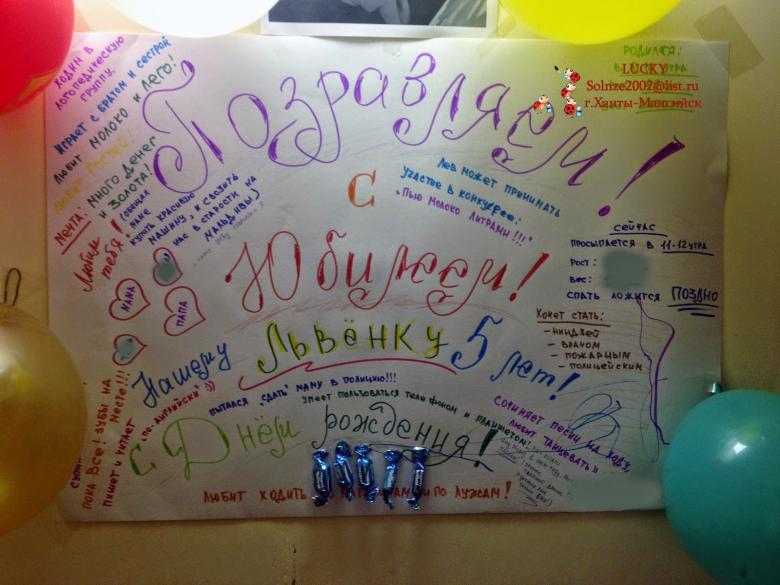 ХОДИМ В
ЛОГОПЕДИЧЕСКУЮ
ГРУППУ.
ИГРАЕТ С БРАТОМ И СЕСТРОЙ
ЛЮБИТ МОЛОКО И ЛЕГО!
МЕЧТА: МНОГО ДЕНЕГ
И ЗОЛОТА!
(ОБЕЩАЛ
ПАПЕ
КУПИТЬ КРАСИВУЮ
МАШИНУ, И СВОЗИТЬ
НАС В СТАРОСТИ НА
МАЛЬДИВЫ)
Любим
тебя!
МАМА
ПАПА
Поздравляем!
с
Юбилеем!
Нашему
ЛЬВЁНКУ
5 лет!
с Днём
рождения!
РОДИЛСЯ:
УТРА
LUCKY
Solnze2002@list.ru
г.Ханты-Мансийск
ЛЕВ МОЖЕТ ПРИНИМАТЬ
УЧАСТИЕ В КОНКУРСЕ:
"ПЬЮ МОЛОКО ЛИТРАМИ!!!"
СЕЙЧАС
ПРОСЫПАЕТСЯ В 11-12 УТРА
РОСТ:
ВЕС:
СПАТЬ ЛОЖИТСЯ ПОЗДНО
ХОЧЕТ СТАТЬ:
- НИНДЗЕЙ
- ВРАЧОМ
- ПОЖАРНЫМ
- ПОЛИЦЕЙСКИМ
ПЫТАЛСЯ "СДАТЬ" МАМУ В ПОЛИЦИЮ!!!
УМЕЕТ ПОЛЬЗОВАТЬСЯ ТЕЛЕФОНОМ И ПЛАНШЕТОМ!
СОЧИНЯЕТ ПЕСНИ НА ХОДУ,
ЛЮБИТ ТАНЦЕВАТЬ
ПОКА ВСЕ! ЗУБЫ НА
МЕСТЕ!!!
ПИШЕТ И ЧИТАЕТ
"ПО-АНГЛИЙСКИ":))
ЛЮБИТ ХОДИТЬ ПО ЛУЖАМ!